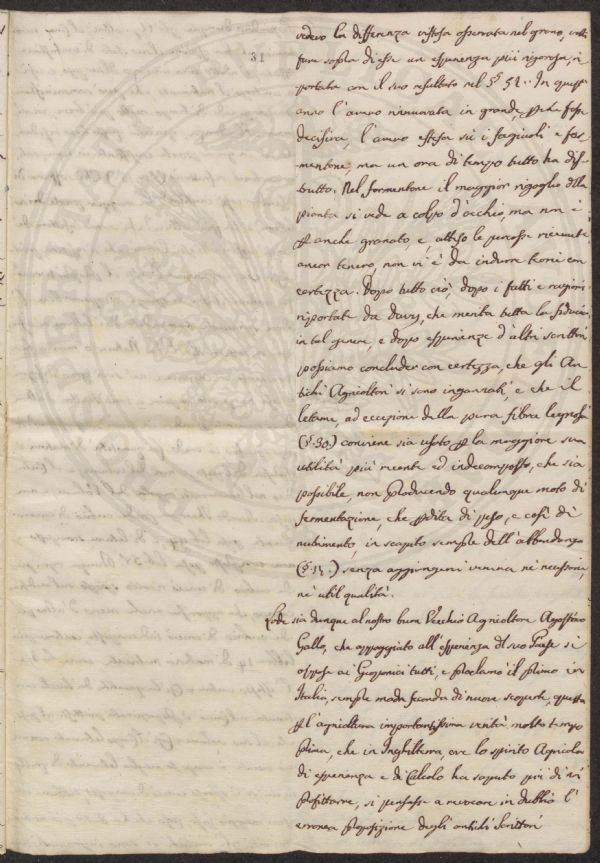 31
vedevo la differenza vistosa osservata nel grano, volli
fare sopra di esse un esperienza più rigorosa, ri
portata con il suo resultato nel §§ 51. In quest'
anno l'avevo rinnovata in grande, perche fosse
decisiva, l'avevo estesa sù i fagiuoli e for
mentone, ma un ora di tempo tutto ha dis
trutto. Nel formentone il maggior rigoglio della
pianta si vede a colpo d'occhio, ma non è
per anche granato e atteso le percosse ricevute
ancor tenero, non vi è da indurre teorie con
certezza. Dopo tutto ciò, dopo i fatti e ragioni
riportate da Davy, che merita tutta la fiducia
in tal genere, e dopo esperienze d'altri scrittori
possiamo concluder con certezza, che gli An
tichi Agricoltori si sono ingannati, e che il
letame, ad eccezione della pura fibra legnosa
(§. 30.) conviene sia usato per la maggiore sua
utilità più recente ed indecomposto, che sia
possibile, non producendo qualunque moto di
fermentazione che perdita di peso, e così di
nutrimento, in scapito sempre dell'abbondanza
(§. 14.) senza aggiungervi veruna nè necessaria,
nè util qualità.
Lode sia dunque al nostro buon Vecchio Agricoltore Agostino
Gallo, che appoggiato all'esperienza del suo Paese si
oppose ai Geoponici tutti, e proclamò il primo in
Italia, sempre madre feconda di nuove scoperte, questa
per l'agricoltura importantissima verità, molto tempo
prima, che in Inghilterra, ove lo spirito Agricolo
di esperienza e di Calcolo ha saputo più di noi
profittarne, si pensasse a revocare in dubbio l'
erronea proposizione degli antichi Scrittori